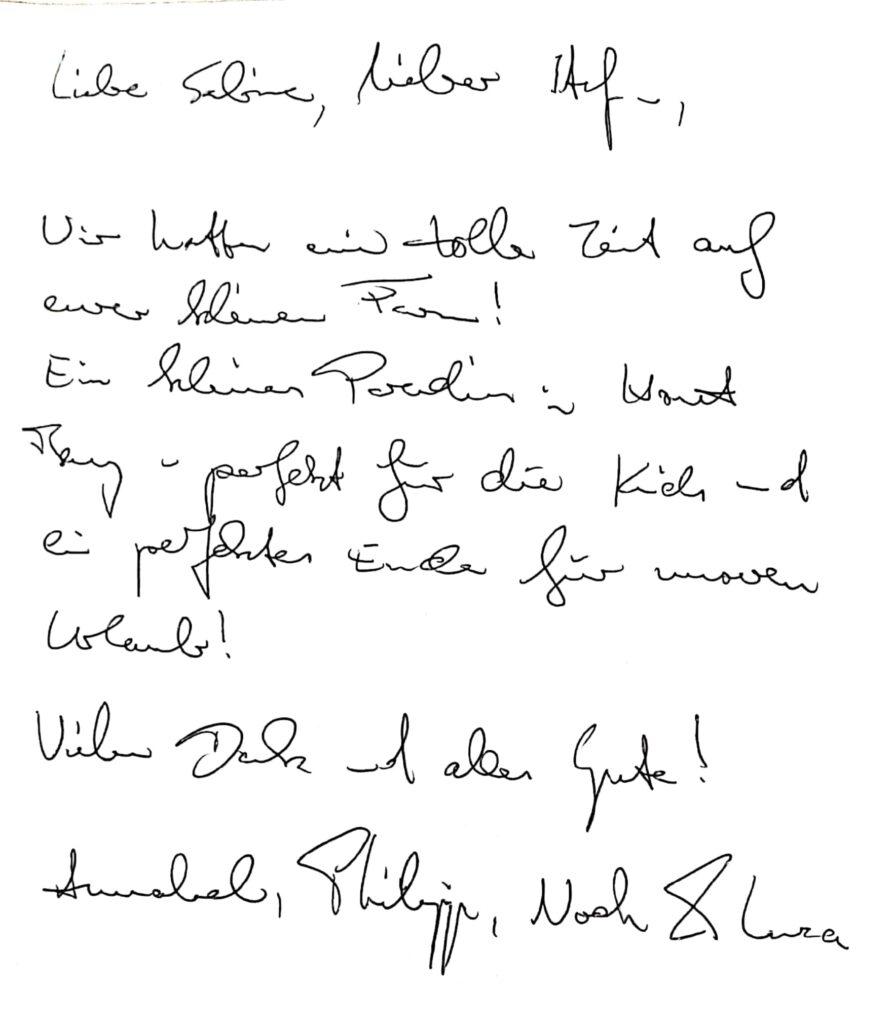 Liebe Sabine, lieber
Wir hatten eine tolle Zeit auf
eurer kleinen Farm!
Ein kleines Paradies in
- perfekt für die Kids und
ein perfektes Ende für unseren
Urlaub!
Vielen Dank und alles Gute!
Annabel, Philipp, Noah & Luca